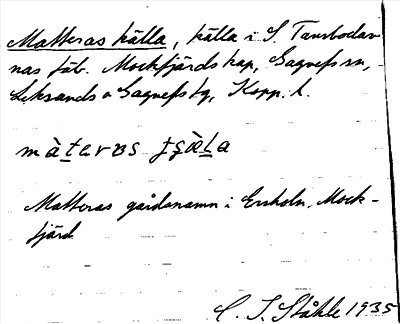 Matteras källa, källa i S. Tansbodar-
nas fäb. Mockfjärds kap, Gagnefs sn,
Leksands o Gagnefs tg, Kopp. l.
màteras tʂäla
Matteras gårdsnamn i Ersholn. Mock-
fjärd
C. I. Ståhle 1935